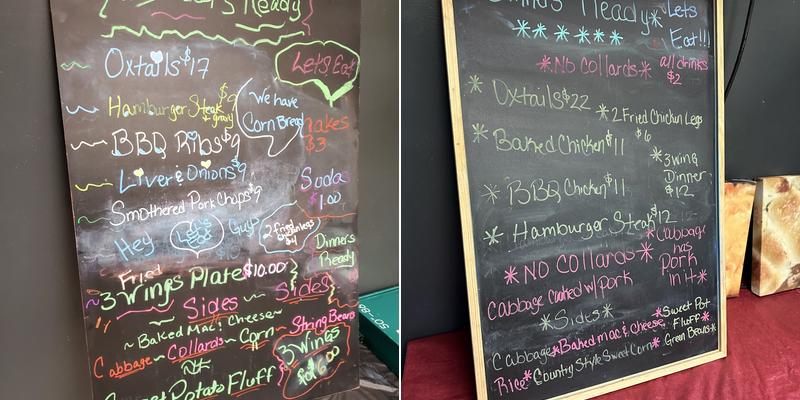 Ready
Oxtails $17
Lets Eat
Hamburger Steak $9
+ gravy
We have
Corn Bread
BBQ Ribs $9
$3
Liver & Onions $9
Soda
$1.00
Smothered Pork Chops $9
Hey Guys
2 fried
chicken legs
$4
Dinners
Ready
Fried
3 Wings Plate $10.00
Sides Sides
~ Baked Mac & Cheese ~
Cabbage ~ Collards ~ Corn ~ String Beans
3 Wings
for $6.00
Sweet Potato Fluff
Ready* Lets
Eat!!!
*NO Collards* all drinks
$2
* Oxtails $22
* 2 Fried Chicken Legs
$6
* Baked Chicken $11
* 3 wing
Dinner
$12
* BBQ Chicken $11
* Hamburger Steak $12
*NO Collards*
*Cabbage
has
Pork
in it*
Cabbage cooked w/ Pork
*Sides*
*Sweet Pot
Fluff*
Cabbage*Baked mac & cheese*
Green Beans*
Rice*Country Style Sweet Corn*